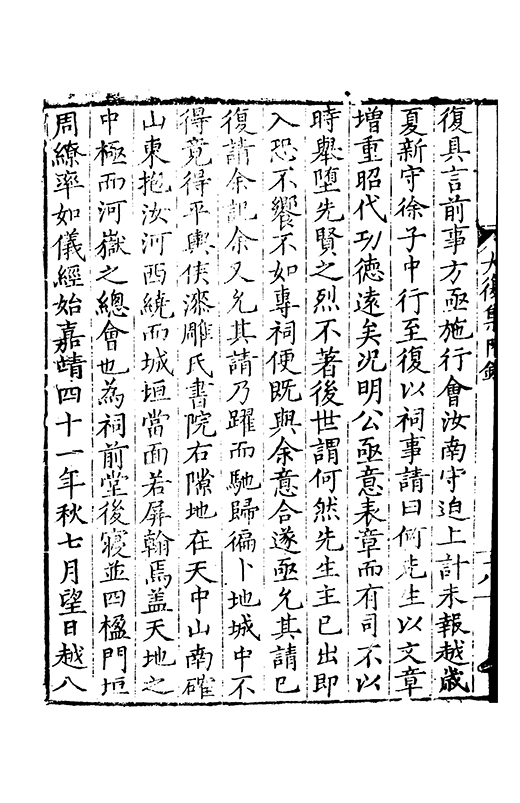 大復集附錄
復具言前事方亟施行會汝南守迫上計未報越歲
夏新守徐子中行至復以祠事請曰何先生以文章
增重昭代功德遠矣況明公亟意表章而有司不以
時舉墮先賢之烈不著後世謂何然先生主已出即
入恐不饗不如專祠便既與余意合遂亟允其請已
復請余記余又允其請乃躍而馳歸徧卜地城中不
得竟得平輿俠漆雕氏書院右隙地在天中山南確
山東抱汝河西繞而城垣當面若屏翰焉蓋天地之
中極而河嶽之總會也為祠前堂後寢並四楹門垣
周繚率如儀經始嘉靖四十一年秋七月望日越八